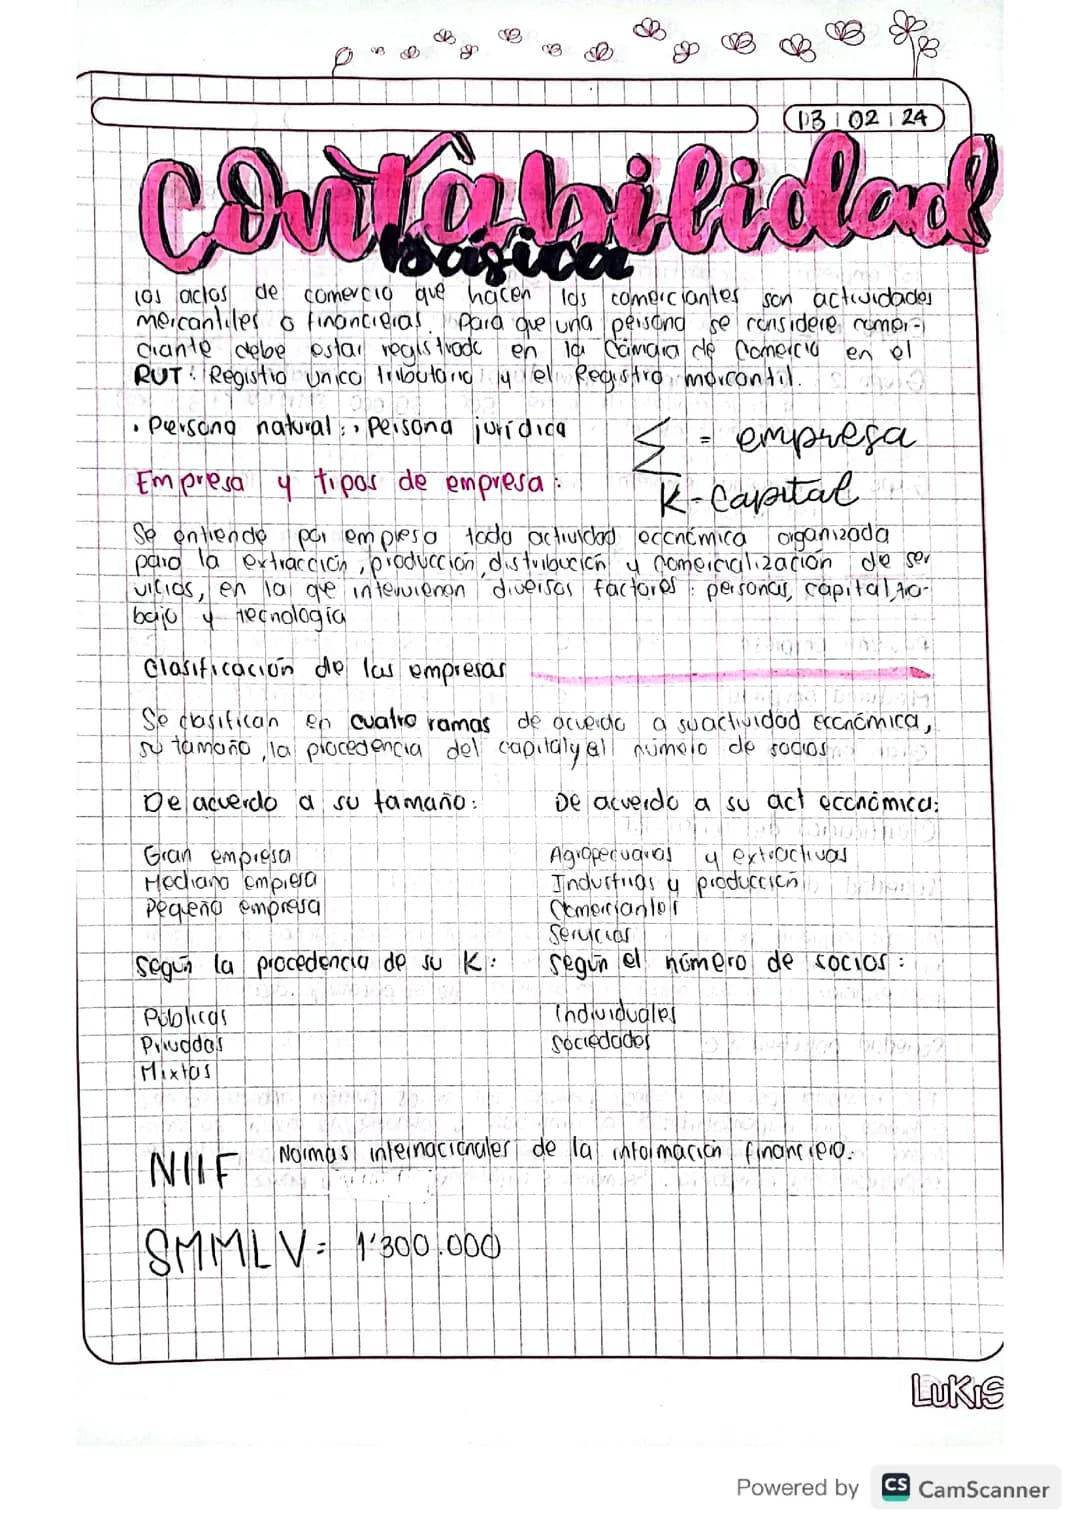 13 02 24
Contabilidad
básica
los actos de comercio que hacen los comerciantes son actividades
mercantiles o financieras. Para que una persona se considere comer-
ciante debe estar registrado en la Cámara de Comercio en el
RUT: Registro unico tributario y el Registro mercantil.
• Persona natural: • Persona jurídica
Σ = empresa
Empresa y tipos de empresa:
K - Capital
Se entiende por empresa toda actividad económica organizada
para la extracción, producción, distribución y comercialización de ser
vicios, en la que intervienen diversos factores: personas, capital, tra-
bajo y tecnología
Clasificación de las empresas
Se clasifican en cuatro ramas de acuerdo a su actividad económica,
su tamaño, la procedencia del capital y el número de socios
De acuerdo a su tamaño: De acuerdo a su act económica:
Gran empresa Agropecuarias y extractivas
Mediana empresa Industrias y producción
Pequeña empresa Comerciantes
Servicios
Según la procedencia de su K: Según el número de socios:
Públicas Individuales
Privadas Sociedades
Mixtas
NIIF Normas internacionales de la información financiera.
SMMLV = 1'300.000
LUKIS
Powered by CS CamScanner